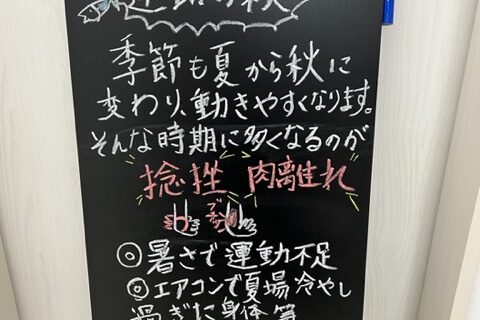 運動の秋
季節も夏から秋に
変わり、動きやすくなります。
そんな時期に多くなるのが
捻挫 肉離れ
◎暑さで運動不足
◎エアコンで夏場冷やし
過ぎた身体 等